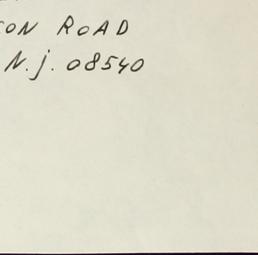 CON ROAD
N.j. 08540